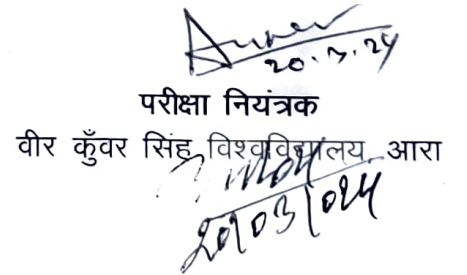 20.3.24
परीक्षा नियंत्रक
वीर कुँवर सिंह विश्वविद्यालय, आरा
20/03/024